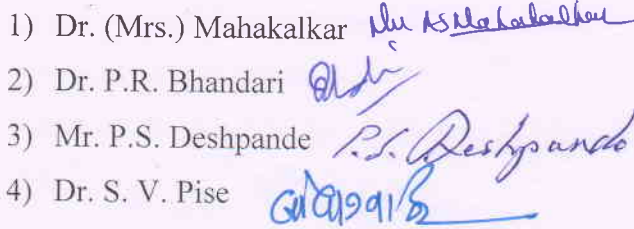 1) Dr. (Mrs.) Mahakalkar
2) Dr. P.R. Bhandari
3) Mr. P.S. Deshpande P.S. Deshpande
4) Dr. S. V. Pise